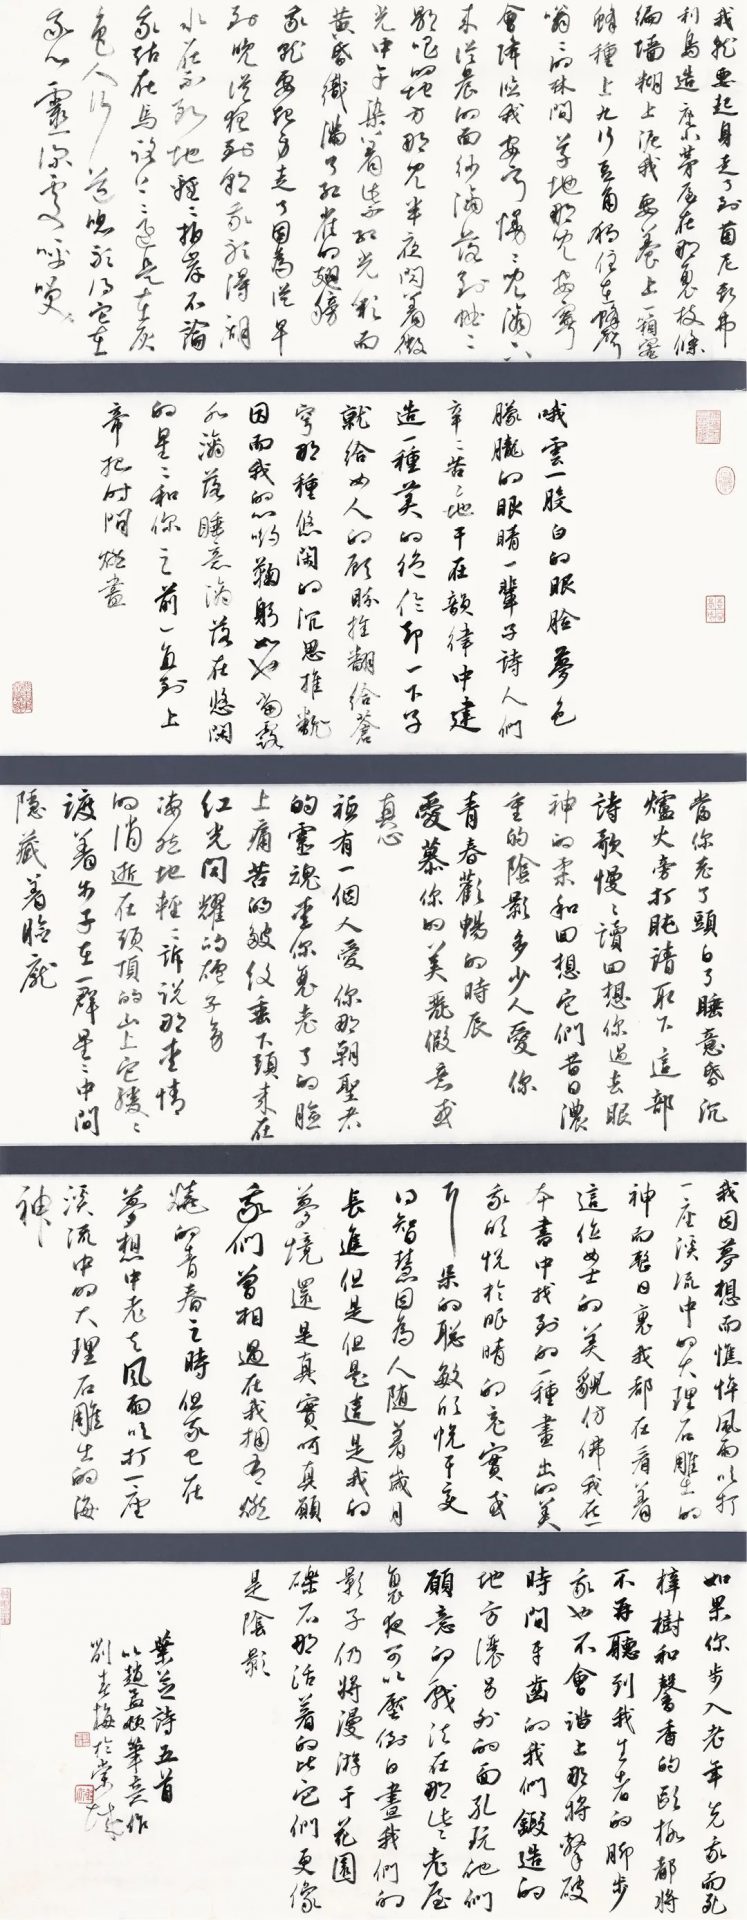 我就要起身走了到茵尼斯弗
利島造座茅屋在那裏枝條
編墻糊上泥我要養上一箱蜜
蜂種上九行豆角獨住在蜂聲
嗡〻的林間草地那兒安寧
會降臨我安寧慢〻兒滴下
來從晨的面紗滴落到蛐〻
歌唱的地方那兒半夜閃著微
光中午染著紫紅光彩而
黃昏織滿了紅雀的翅膀
我就要起身走了因為從早
到晚從夜到朝我聽得湖
水在不斷地輕〻拍岸不論
我站在馬路上還是在灰
色人行道總聽得它在
我心靈深處呼喚
哦雲一般白的眼臉夢色
朦朧的眼睛一輩子詩人們
辛〻苦〻地干在韻律中建
造一種美的絕倫卻一下子
就給女人的顧盼推翻給蒼
穹那種悠閑的沉思推翻
因而我的心喲鞠躬如也當露
水滴落睡意滴落在悠閑
的星〻和你之前一直到上
帝把時間燃盡
當你老了頭白了睡意昏沉
爐火旁打盹請取下這部
詩歌慢〻讀回想你過去眼
神的柔和回想它們昔日濃
重的陰影多少人愛你
青春歡暢的時辰
愛慕你的美麗假意或
真心
祇有一個人愛你那朝聖者
的靈魂愛你衰老了的臉
上痛苦的皺紋垂下頭來在
紅光閃耀的爐子旁
凄然地輕〻訴說那愛情
的消逝在頭頂的山上它緩〻
踱著步子在一群星〻中間
隱藏著臉龐
我因夢想而憔悴風雨吹打
一座溪流中的大理石雕出的海
神而整日裏我都在看著
這位女士的美貌仿佛我在一
本書中找到的一種畫出的美
我欣悅於眼睛的充實或
耳朵的聰敏欣悅于變
得智慧因為人隨著歲月
長進但是但是這是我的
夢境還是真實呵真願
我們曾相遇在我擁有燃
燒的青春之時但我已在
夢想中老去風雨吹打一座
溪流中的大理石雕出的海
神
如果你步入老年先我而死
梓樹和馨香的歐椴都將
不再聽到我生者的腳步
我也不會踏上那將擊破
時間牙齒的我們鍛造的
地方讓另外的面孔玩他們
願意的戲法在那些老屋
裏夜可以壓倒白晝我們的
影子仍將漫游于花園
礫石那活著的比它們更像
是陰影
葉芝詩五首
以趙孟頫筆意作